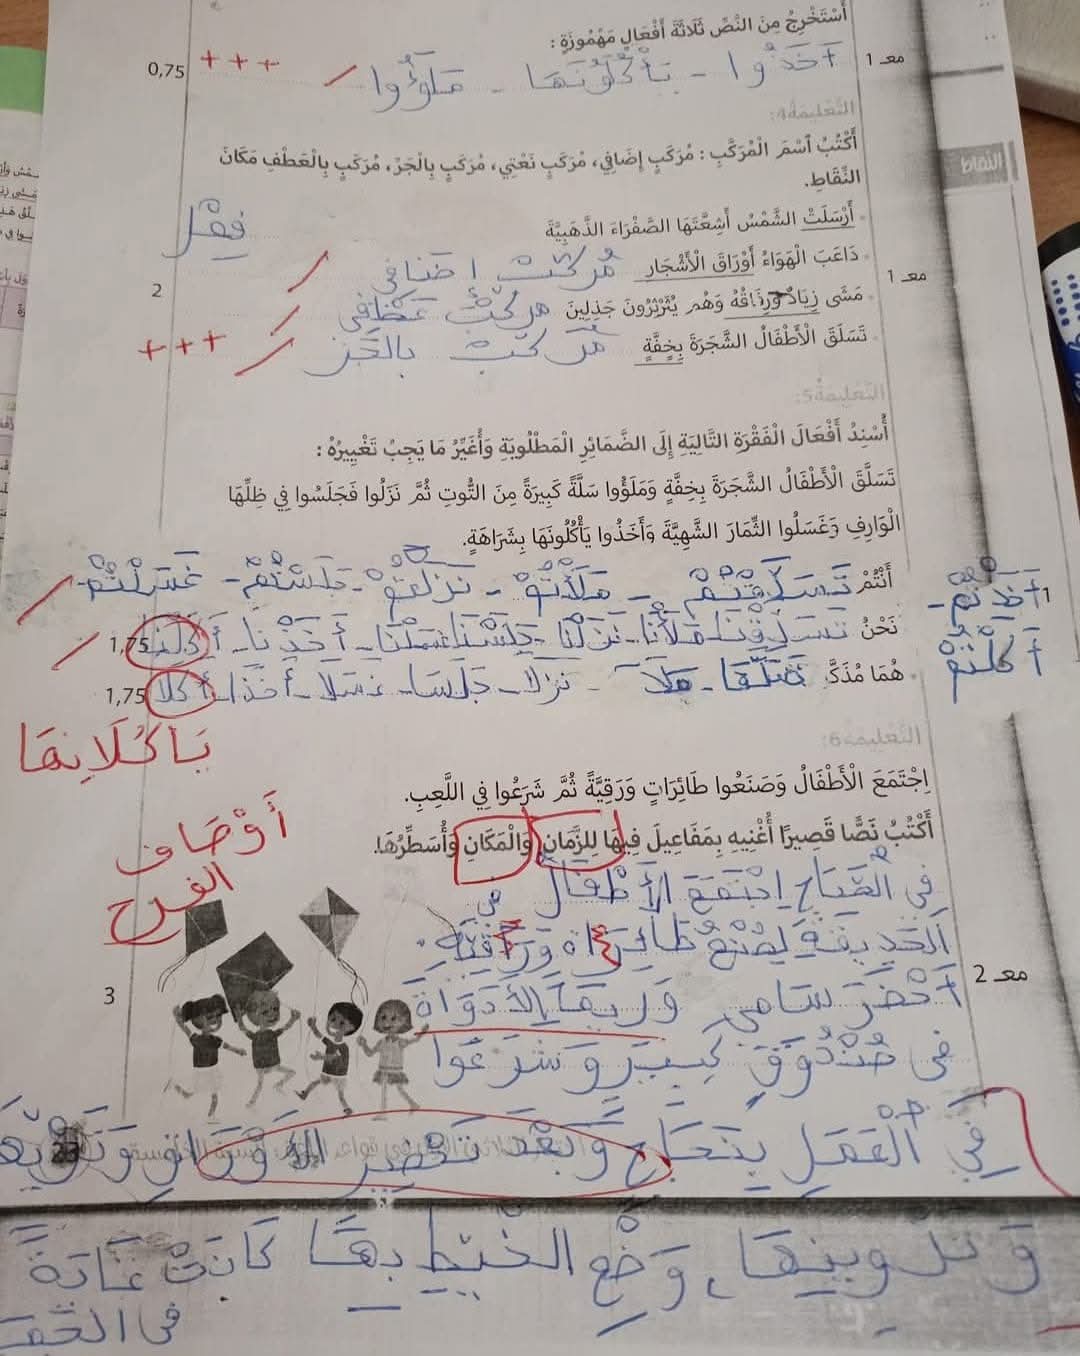 أَسْتَخْرِجُ مِنَ النَّصِّ ثَلَاثَةَ أَفْعَالٍ مَهْمُوزَةٍ :
معـ 1
أَخَذُوا - يَأْكُلُونَهَا - مَلَؤُوا
+ + +
0,75
التَّعْلِيمَة 4:
أَكْتُبُ اسْمَ الْمُرَكَّبِ : مُرَكَبٍ إِضَافِي، مُرَكَبٍ نَعْتِي، مُرَكَبٍ بِالْجَرْ، مُرَكَبٍ بِالْعَطْفِ مَكَانَ
النِّقَاطِ.
النقاط
- أَرْسَلَتْ الشَّمْسُ أَشِعَّتَهَا الصَّفْرَاءَ الذَّهَبِيَّةَ فِعْل
- دَاعَبَ الْهَوَاءُ أَوْرَاقَ الْأَشْجَارِ مُركّبْ إضافي
معـ 1
2
- مَشَى زِيَادُ وَرِفَاقُهُ وَهُم يُثَرْثِرُونَ جَذِلِينَ مركّبْ عَطْفِي
- تَسَلَقَ الْأَطْفَالُ الشَّجَرَةَ بِخِفَّةٍ مُركّبْ بالجَر
+ + +
التَّعْلِيمَةُ 5:
أُسْنِدُ أَفْعَالَ الْفَقْرَةِ التَّالِيَةِ إِلَى الضَّمَائِرِ الْمَطْلُوبَةِ وَأُغَيِّرُ مَا يَجِبُ تَغْيِيرُهُ :
تَسَلَّقَ الْأَطْفَالُ الشَّجَرَةَ بِخِفَّةٍ وَمَلَؤُوا سَلَّةً كَبِيرَةً مِنَ التُّوتِ ثُمَّ نَزَلُوا فَجَلَسُوا فِي ظِلِّهَا
الْوَارِفِ وَغَسَلُوا الثِّمَارَ الشَّهِيَّةَ وَأَخَذُوا يَأْكُلُونَهَا بِشَرَاهَةٍ.
أَنْتُمْ تَسَلَّقْتُمْ - مَلَأْتُمْ - نَزَلْتُمْ - جَلَسْتُمْ - غَسَلْتُمْ - أَخَذْتُمْ -
أَكَلْتُمْ
نَحْنُ تَسَلَّقْنَا - مَلَأْنَا - نَزَلْنَا - جَلَسْنَا - غسَلْنَا - أَخَذْنَا - أَكَلْنَا
1
1,75
- هُمَا مُذَكَّر تَسَلَّقَا - مَلَآ - نَزَلَا - جَلَسَا - غسَلا - أخَذَا - أكَلا
1,75
يَأْكُلَانِهَا
التَّعْلِيمَة 6:
اِجْتَمَعَ الْأَطْفَالُ وَصَنَعُوا طَائِرَاتٍ وَرَقِيَّةً ثُمَّ شَرَعُوا فِي اللَّعِبِ.
أَكْتُبُ نَصًّا قَصِيرًا أُغْنِيهِ بِمَفَاعِيلَ فِيهَا لِلزَّمَانِ وَالْمَكَانِ وَأُسَطِّرُهَا.
أَوْصَاف
الفرح
في الصَّبَاحِ اِجْتَمَعَ الأَطْفَالُ في
الحَدِيقَةِ لِصُنْعِ طَائِرَاة وَرَقِيَّة.
معـ 2
3
أَحْضَرَ سَامِي وَرِيقَا الأَدَوَاة
في صُنْدُوقٍ كَبِيرٍ وَشَرَعُوا
فِي الْعَمَلِ بِنَجَاحٍ وَبَعْدَ تَحْضِيرِ الأَوْرَاقِ
23
وَتَلْوِينِهَا، وَضْعِ الخَيْطِ بِهَا كَانَتْ
في